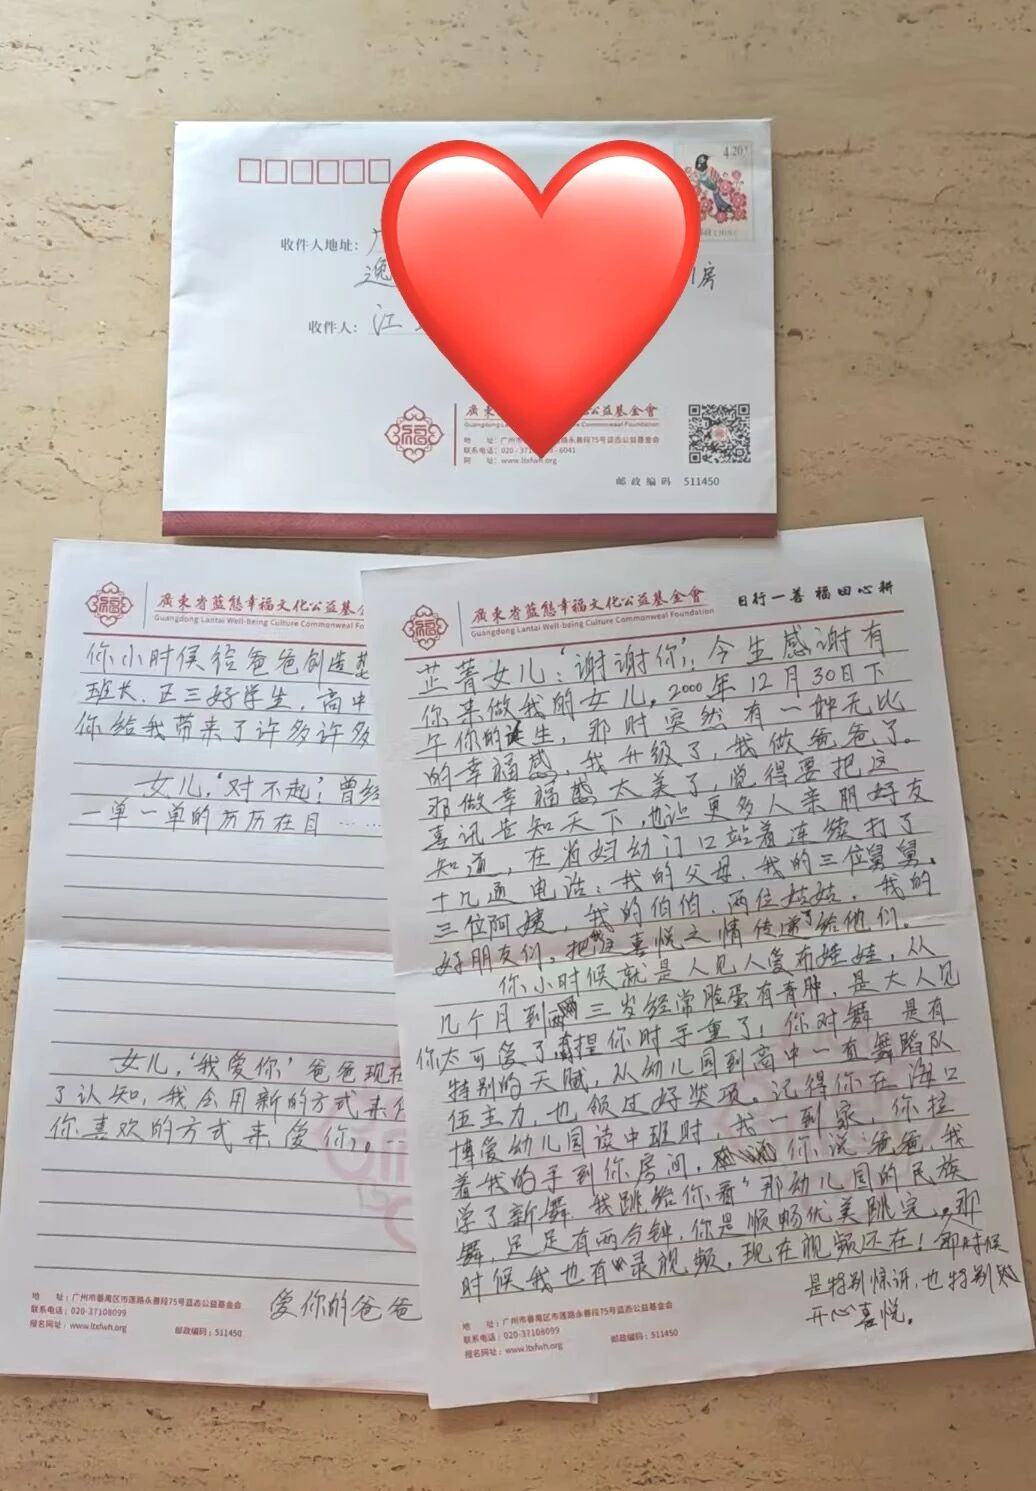 4.20
收件人地址：
逸
房
收件人：江
廣東
公益基金會
Guangdong Lantai Well-being Culture Commonweal Foundation
地 址：广州市
永善段75号蓝态公益基金会
联系电话：020-371
-6041
网 址：www.ltxfwh.org
邮政编码 511450
廣東省蓝態幸福文化公益基
Guangdong Lantai Well-being Culture Commonweal Fo
你小时候给爸爸创造
班长、三好学生，高中
你给我带来了许多许多
女儿，'对不起'！曾经
一单一单的历历在目……
女儿，'我爱你'爸爸现在
了认知，我会用新的方式来
你喜欢的方式来爱你。
爱你的爸爸
地 址：广州市番禺区市莲路永善段75号蓝态公益基金会
联系电话：020-37108099
报名网址：www.ltxfwh.org 邮政编码：511450
廣東省蓝態幸福文化公益基金會
Guangdong Lantai Well-being Culture Commonweal Foundation
日行一善 福田心耕
芷菁女儿：'谢谢你'；今生感谢有
你来做我的女儿。2000年12月30日下
午你的诞生，那时突然有一种无比
的幸福感，我升级了，我做爸爸了。
那做幸福感太美了，觉得要把这
喜讯告知天下，也让更多人亲朋好友
知道，在省妇幼门口站着连续打了
十几通电话：我的父母、我的三位舅舅、
三位阿姨，我的伯伯、两位姑姑，我的
好朋友们。把这喜悦之情传递了给他们。
你小时候就是人见人爱布娃娃，从
几个月到三岁经常脸蛋有青肿，是大人见
你太可爱了捏你时手重了！你对舞是有
特别的天赋，从幼儿园到高中一直舞蹈队
伍主力，也领过好奖项。记得你在海口
博爱幼儿园读中班时，我一到家，你拉
着我的手到你房间，你说'爸爸，我
学了新舞，我跳给你看'那幼儿园的民族
舞，足足有两分钟，你是顺畅优美跳完，那
时候我也有录视频，现在视频还在！那时候
是特别惊讶，也特别
开心喜悦。
地 址：广州市番禺区市莲路永善段75号蓝态公益基金会
联系电话：020-37108099
报名网址：www.ltxfwh.org 邮政编码：511450